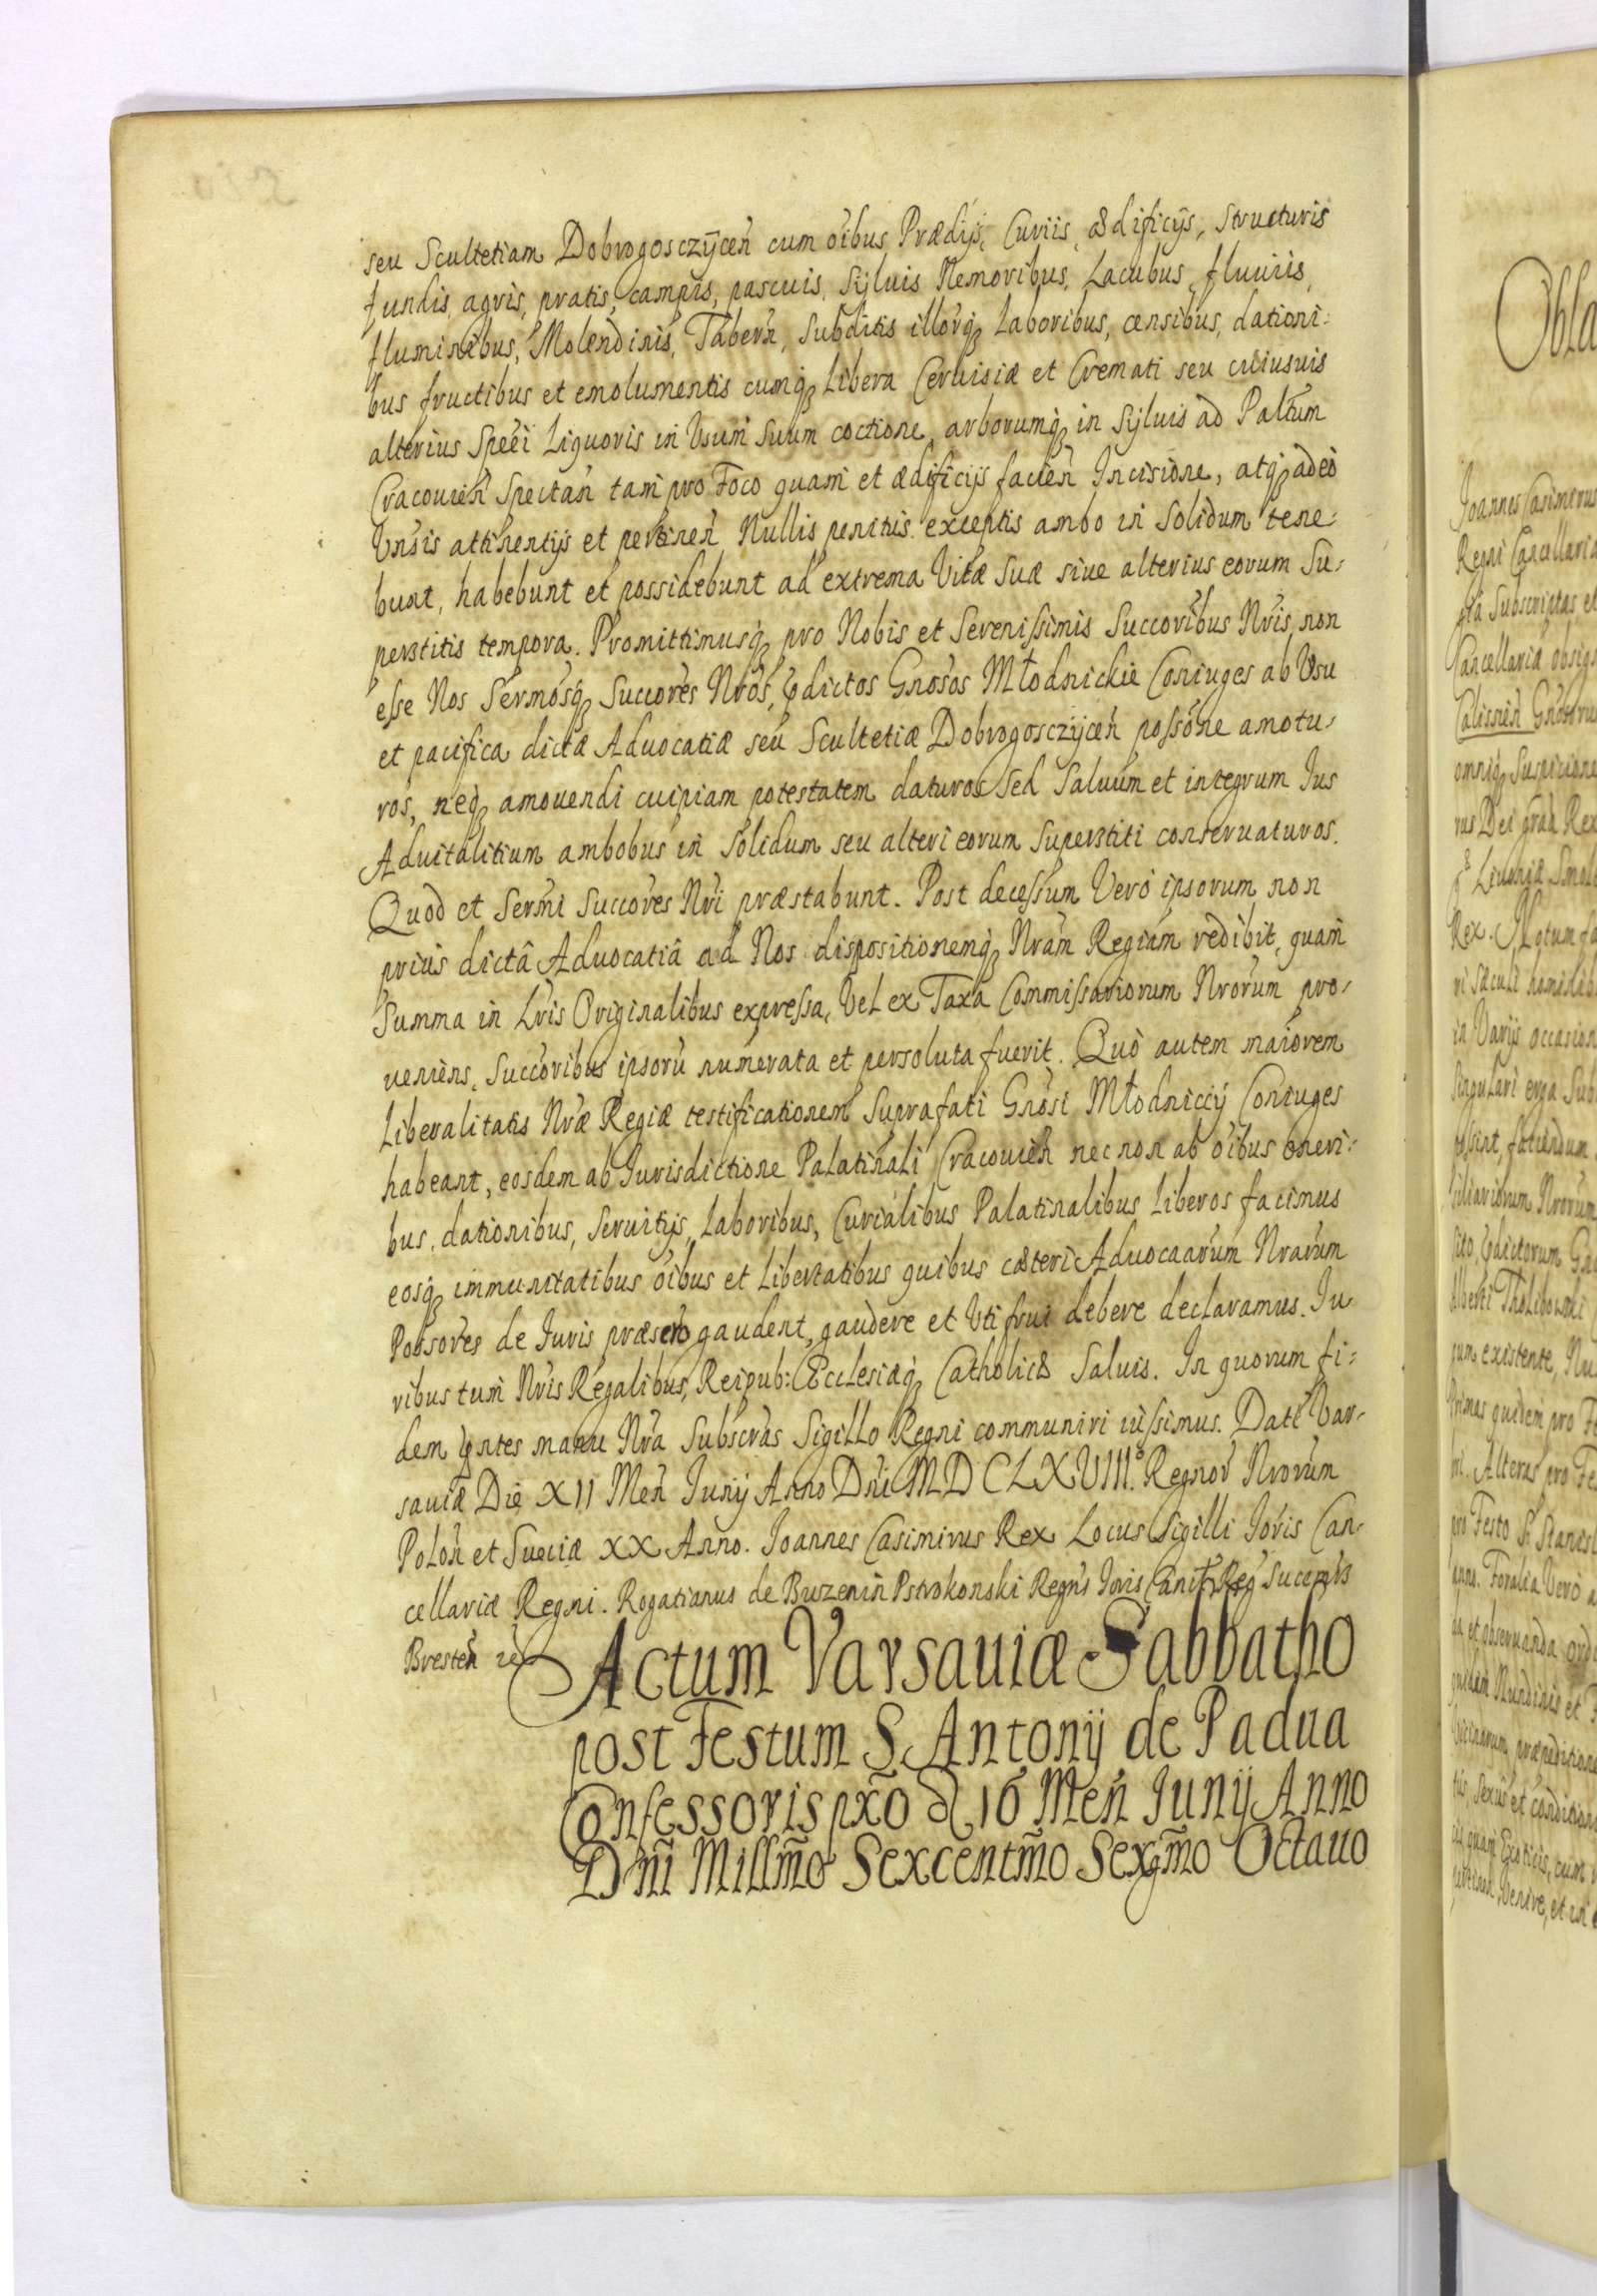 seu Scultetiam Dobrogosczÿceñ cum oĩbus Prædijs, Curiis, ædificÿs, structuris
fundis, agris, pratis, campis, pascuis, Sÿluis Nemoribus, Lacubus, fluuiis,
fluminibus, Molendinis, Taberñ, Subditis illorq₃ Laboribus, censibus, dationi:
bus fructibus et emolumentis cumq₃ Libera Ceruisiæ et Cremati seu cuiusuis
alterius Speẽi Liquoris in Vsum Suum coctione, arborumq₃ in Sÿluis ad Paltũm
Cracouieñ Spectañ tam pro Foco quam et ædificijs facieñ Incisione, atq₃ adeo
Vnsis attinentijs et pertineñ Nullis penitus exceptis ambo in Solidum tene:
bunt, habebunt et possidebunt ad extrema Vitæ Suæ siue alterius eorum Su:
perstitis tempora. Promittimusq₃ pro Nobis et Serenissimis Succoribus Nris, non
esse Nos Sermosq₃ Succores Nros, pdictos Gnosos Młodnickie Coniuges ab Vsu
et pacifica dictæ Aduocatiæ seu Scultetiæ Dobrogosczÿceñ possone amotu:
ros, neq₃ amouendi cuipiam potestatem daturos sed Saluum et integrum Ius
Aduitalitium ambobus in Solidum seu alteri eorum Superstiti conseruaturos.
Quod et Sermi Succores Nri præstabunt. Post decessum Vero ipsorum non
prius dictâ Aduocatiâ ad Nos dispositionemq₃ Nram Regiam redibit, quam
Summa in Lris Originalibus expressa, Vel ex Taxa Commissariorum Nrorum pro:
ueniens, Succoribus ipsorũ numerata et persoluta fuerit. Quò autem maiorem
Liberalitatis Nræ Regiæ testificationem Suprafati Gnosi Młodniccÿ Coniuges
habeant, eosdem ab Iurisdictione Palatinali Cracouieñ nec non ab oĩbus oneri:
bus, dationibus, Seruitijs, Laboribus, Curialibus Palatinalibus Liberos facimus
eosq₃ immunitatibus oĩbus et Libertatibus quibus cæteri Aduocaarum Nrarum
Possores de Iuris præscrto gaudent, gaudere et Vti frui debere declaramus. Iu
ribus tum Nris Regalibus, Reipub: Ecclesiæq₃ Catholicæ Saluis. In quorum fi:
dem pntes manu Nra Subscras Sigillo Regni communiri iussimus. Dati Var:
sauiæ Die XII Meñ Iunÿ Anno Dni MDCLXVIII.° Regnor Nrorum
Poloñ et Sueciæ XX Anno. Ioannes Casimirus Rex Locus Sigilli Ioris Can:
cellariæ Regni. Rogatianus de Buzenin Pstrokonski Regns Ioris
Bresteñ
Actum Varsauiæ Sabbatho
post Festum S. Antonÿ de Padua
Confessoris px̃o d 16 Meñ Iunÿ Anno
Dñi Millm̃o Sexcentm̃o Sexgm̃o Octauo
Obla
Ioannes Casimirus
Regni Cancellaria
Subscriptas et
Cancellariæ obsig
Calissieñ Gnosoru
omniq₃ Suspicione
rus Dei grañ Rex
Liuoniæ Smol
Rex. Notum fa
in Varijs occasion
Singulari erga Sub
faciendum
existente, Nu
Primas quidem pro Fe
Alteras pro Fe
pro Festo S. Stanisl
anno. Foralia Vero a
et obseruanda ordi
quidem Nundinis et F
præpeditione
Sexus et condition
quam Exoticis, cum
Venire, et in